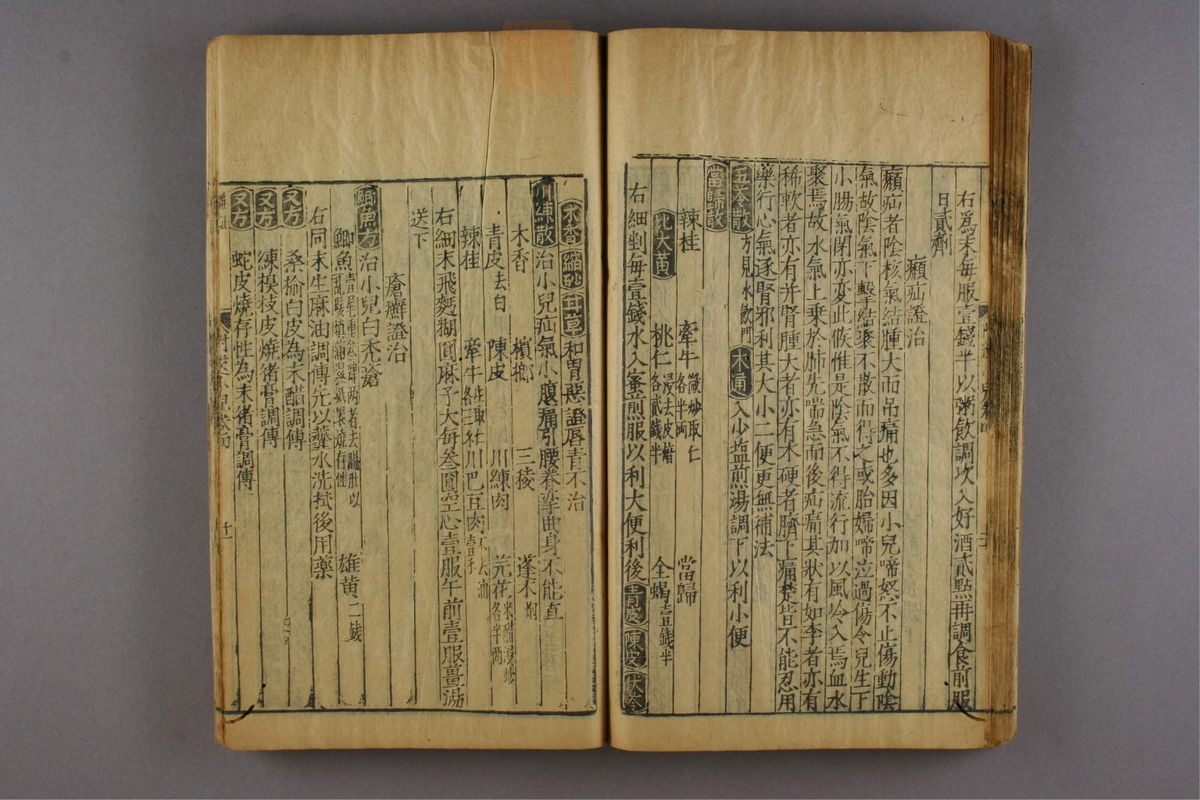 右爲末每服壹錢半以粥飲調次入好酒貳點再調食前服
日貳劑
㿗疝證治
㿗疝者陰核氣結腫大而吊痛也多因小兒啼怒不止傷動陰
氣故陰氣下擊結聚不散而得之或胎婦啼泣過傷令兒生下
小腸氣閉亦變此候惟是陰氣不得流行加以風冷入焉血水
聚焉故水氣上乘於肺先喘急而後疝痛其狀有如李者亦有
稀軟者亦有并腎腫大者亦有木硬者臍上痛楚皆不能忍用
藥行心氣逐腎邪利其大小二便更無補法
五苓散 方見水飲門 木通 入少塩煎湯調下以利小便
當歸散
辣桂 牽牛 微炒取仁各半兩 當歸
大黄 桃仁 浸去皮焙各貳錢半 全蝎 壹錢半
右細剉每壹錢水入蜜煎服以利大便利後 青皮 陳皮 茯苓
木香 縮砂 甘草 和胃惡證唇青不治
川練散 治小兒疝氣小腹痛引腰拳攣曲身不能直
木香 檳榔 三稜 蓬朮
青皮 去白 陳皮 川練肉 芫花
辣桂 牽牛 川巴豆肉 不去油
右細末飛麪糊圓麻子大每叁圓空心壹服午前壹服薑湯
送下
瘡癬證治
鯽魚方 治小兒白禿瘡
鯽魚 雄黄 二錢
右同末生麻油調傅先以虀水洗拭後用藥
又方 桑榆白皮為末醋調傅
又方 練椇枝皮燒猪膏調傅
又方 蛇皮燒存性為末猪膏調傅